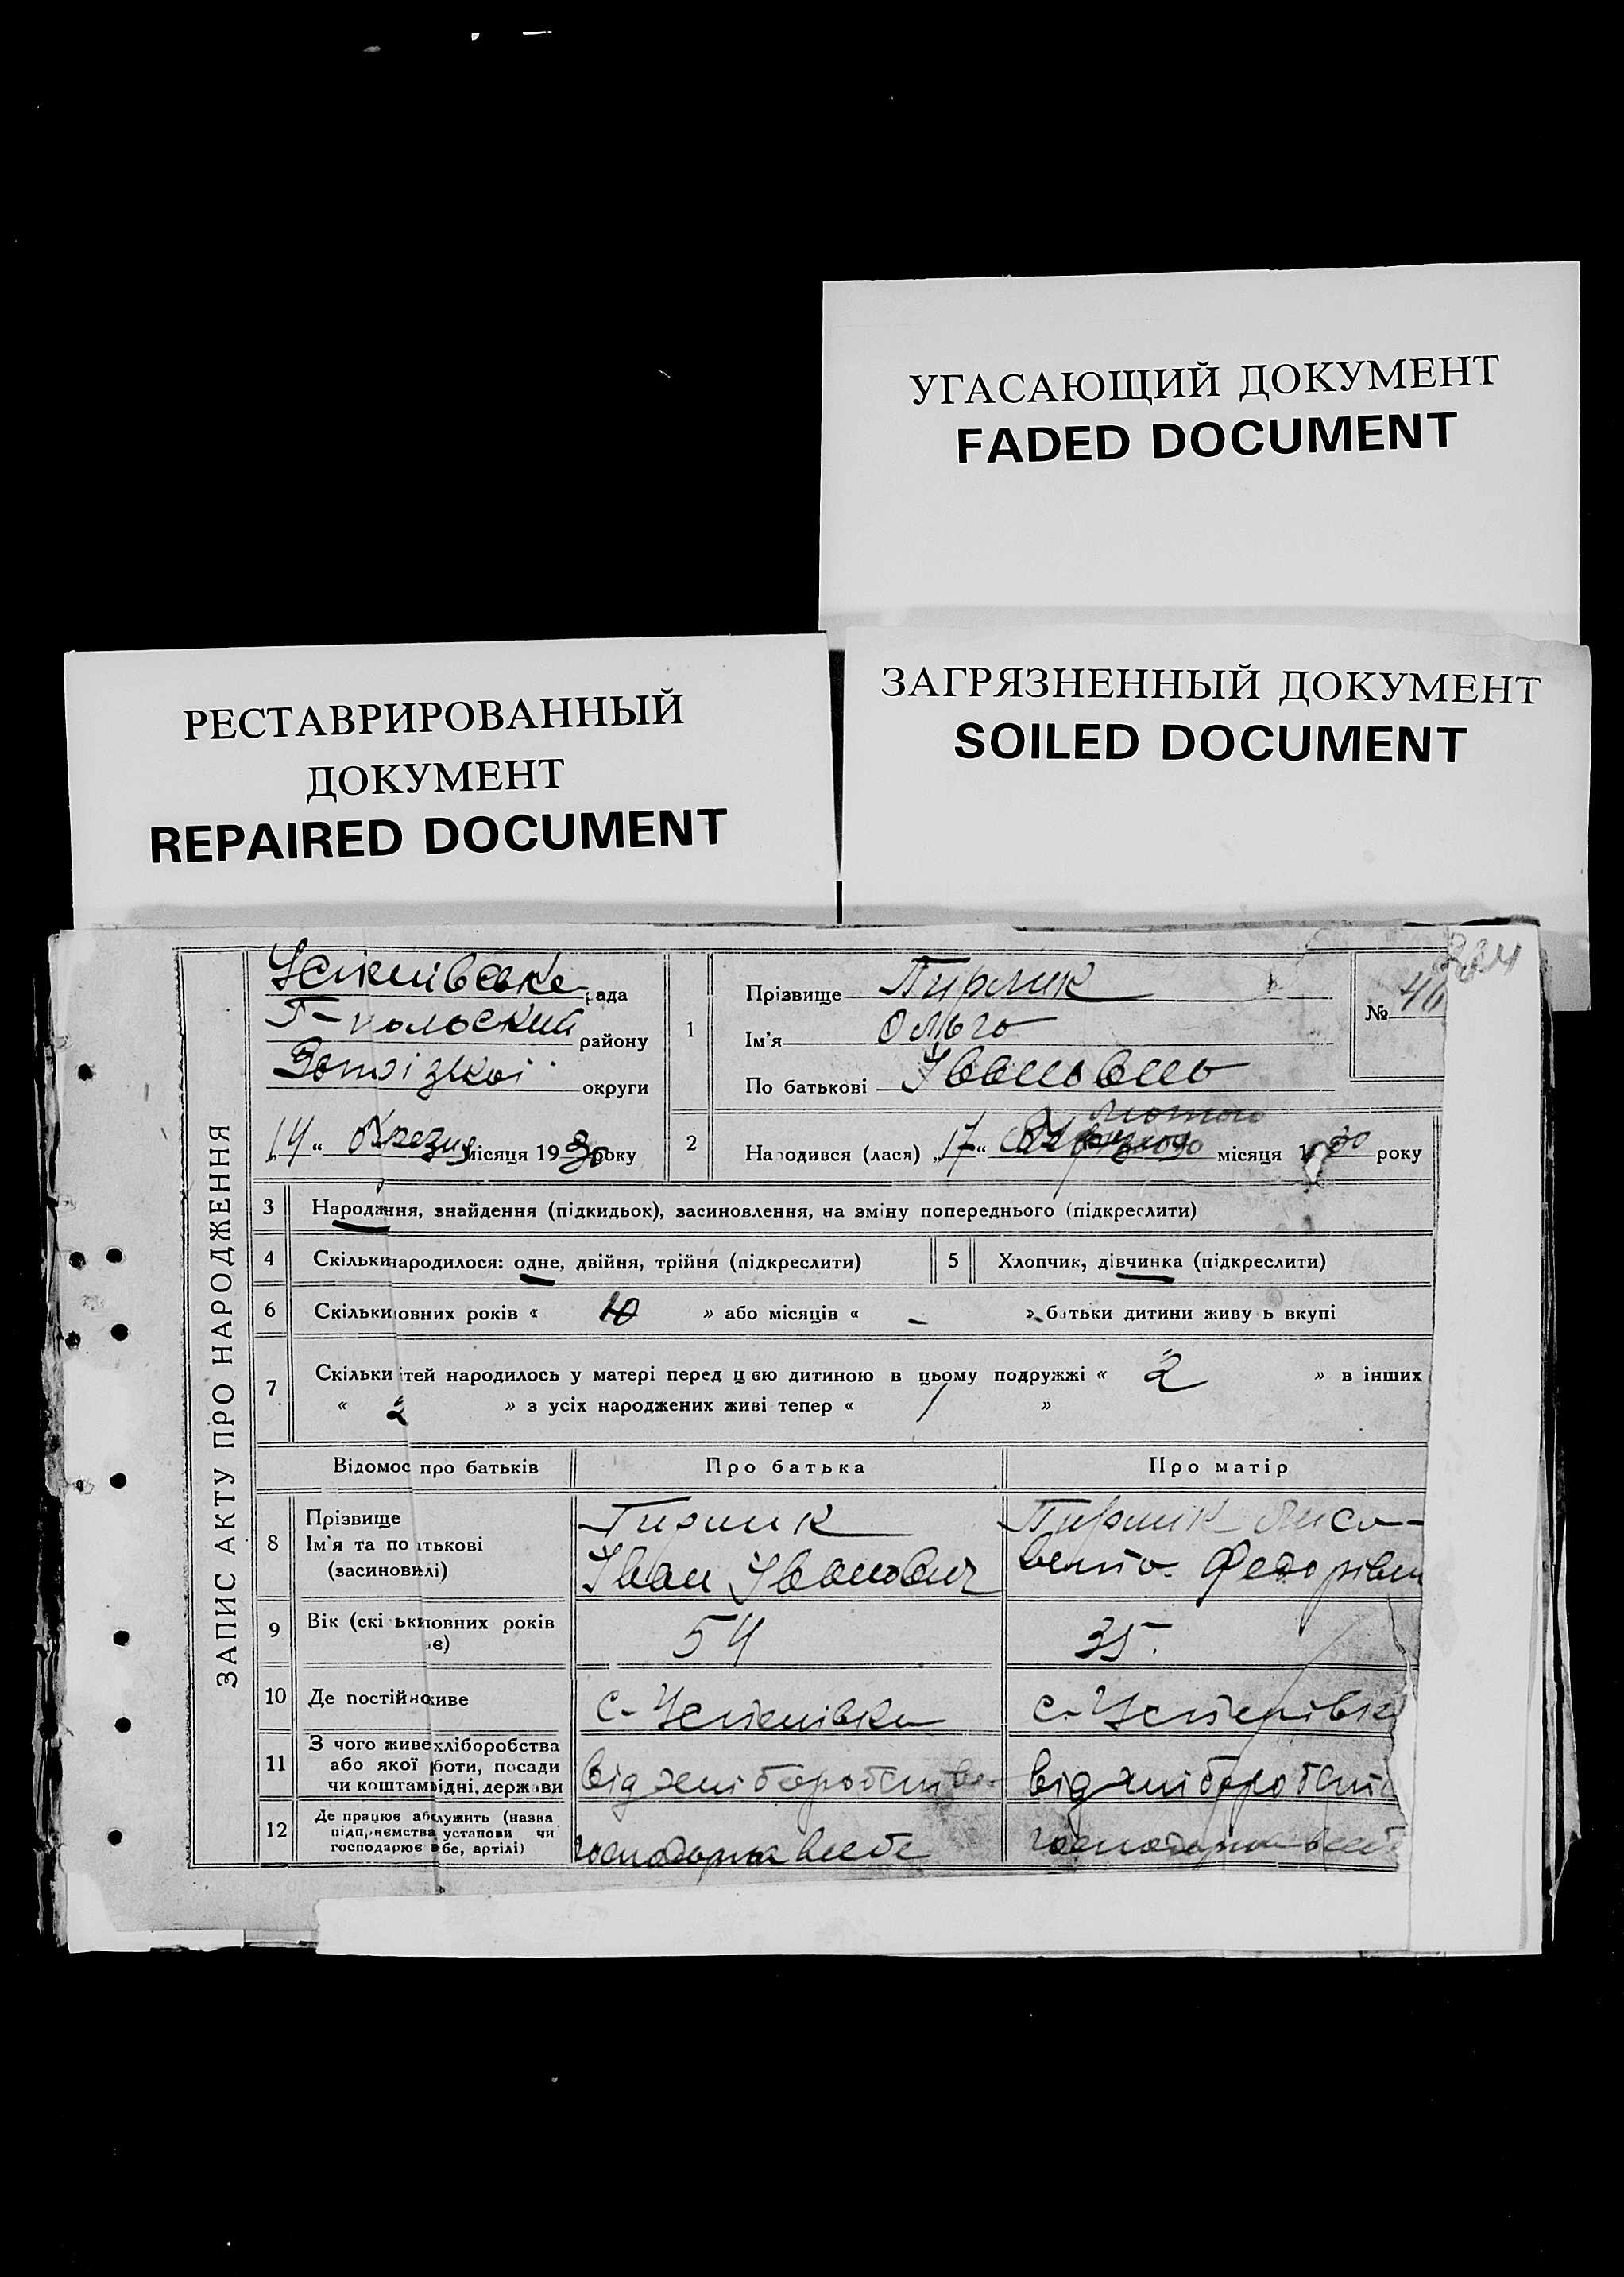 УГАСАЮЩИЙ ДОКУМЕНТ
FADED DOCUMENT
ЗАГРЯЗНЕННЫЙ ДОКУМЕНТ
SOILED DOCUMENT
РЕСТАВРИРОВАННЫЙ
ДОКУМЕНТ
REPAIRED DOCUMENT
ЗАПИС АКТУ ПРО НАРОДЖЕННЯ
Успенівська рада
Г-польский району
Запорізької округи
„14“ березня місяця 1930 року
1
Прізвище Пирлик
Ім'я Ольга
По батькові Івановна
№ 46
2
лютого
Народився (лась) „17“ місяця 1930 року
3 Народження, знайдення (підкидьок), засиновлення, на зміну попереднього (підкреслити)
4 Скільки народилося: одне, двійня, трійня (підкреслити)
5 Хлопчик, дівчинка (підкреслити)
6 Скільки повних років « 10 » або місяців « - » батьки дитини живуть вкупі
7 Скільки дітей народилось у матері перед цією дитиною в цьому подружжі « 2 » в інших
« 2 » з усіх народжених живі тепер « 1 »
Відомос про батьків
Про батька
Про матір
8 Прізвище
Ім'я та по атькові
(засиновилі)
Пирлик
Іван Іванович
Пирлик Лиса-
вета Федорівн
9 Вік (скільки повних років
є)
54
35.
10 Де постійно живе
с. Успенівка
с. Успенівка
11 З чого живе хліборобства
або якої роботи, посади
чи коштам рідні, держави
від хліборобства
від хліборобст
12 Де працює або служить (назва
підприємства установи чи
господарює в себе, артілі)
господарка в себе
господарка в себе